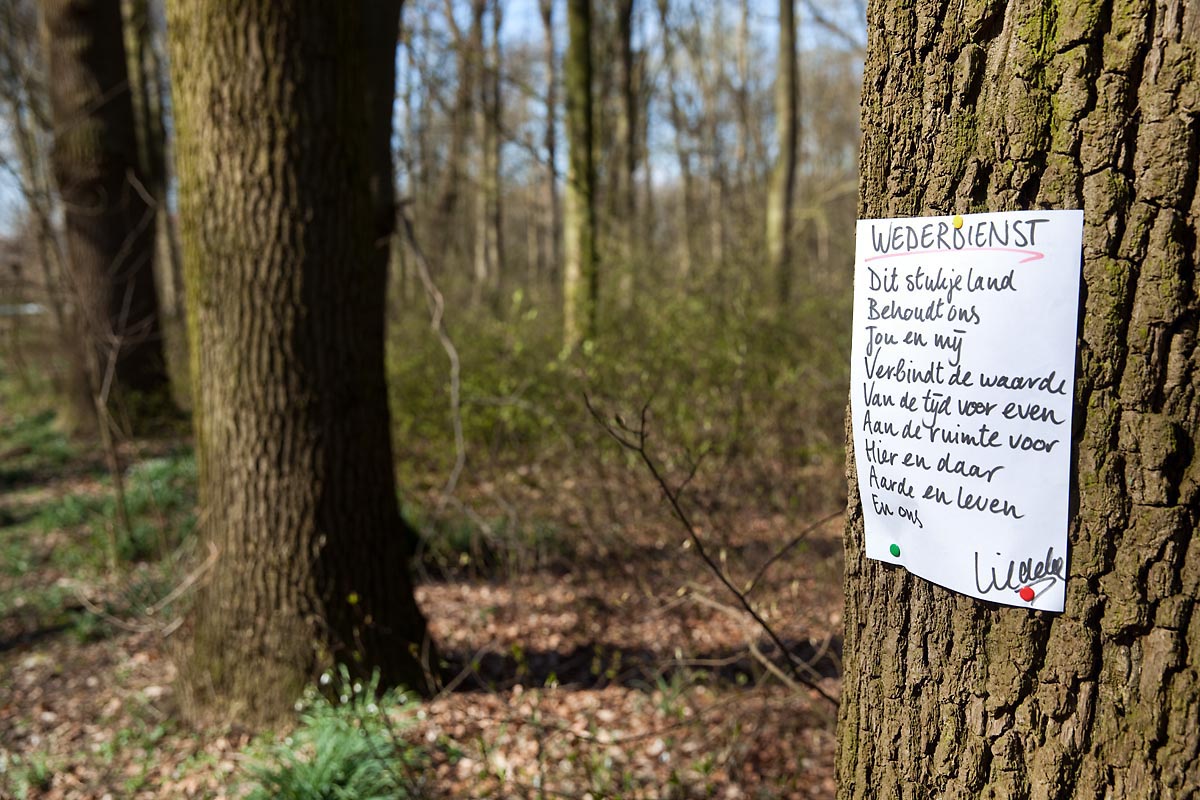 WEDERDIENST
Dit stukje land
Behoudt ons
Jou en mij
Verbindt de waarde
Van de tijd voor even
Aan de ruimte voor
Hier en daar
Aarde en leven
En ons